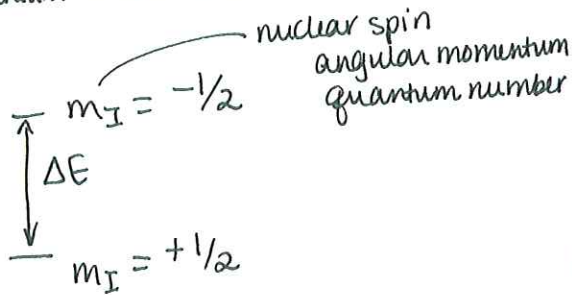 nuclear spin
angular momentum
quantum number
m_I = -1/2
ΔE
m_I = +1/2